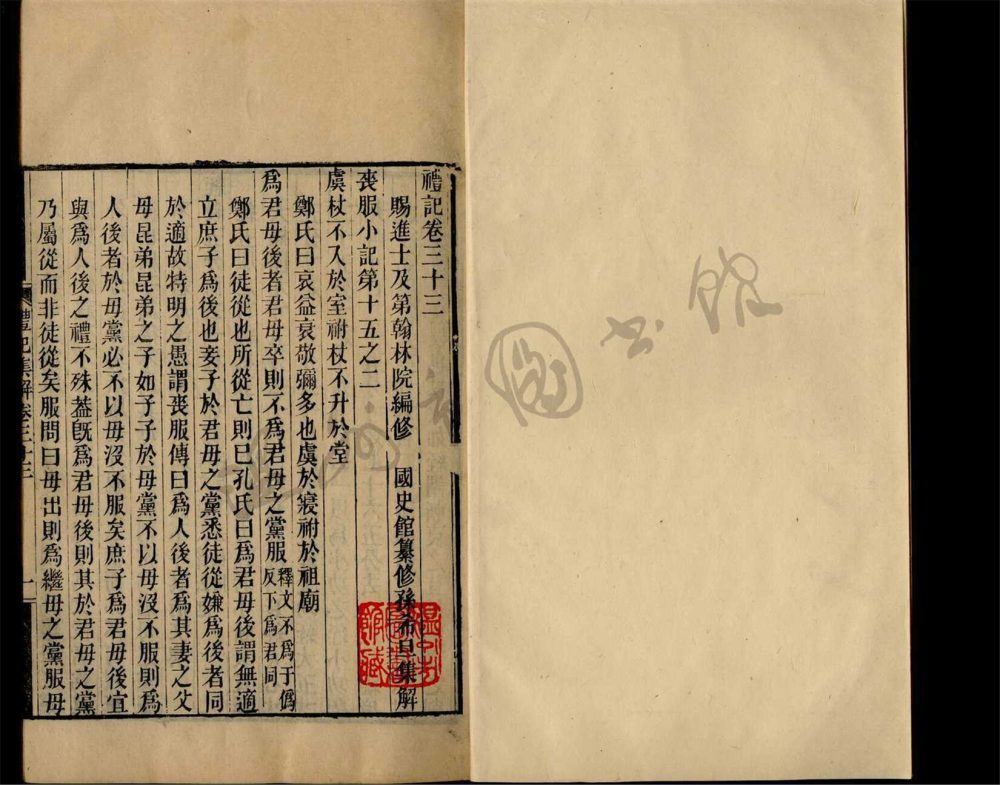 禮記卷三十三
賜進士及第翰林院編修 國史館纂修孫希旦集解
喪服小記第十五之二
虞杖不入於室祔杖不升於堂
鄭氏曰哀益衰敬彌多也虞於寢祔於祖廟
爲君母後者君母卒則不爲君母之黨服釋文不爲于僞反下爲君同
鄭氏曰徒從也所從亡則已孔氏曰爲君母後謂無適
立庶子爲後也妾子於君母之黨悉徒從嫌爲後者同
於適故特明之愚謂喪服傳曰爲人後者爲其妻之父
母昆弟昆弟之子如子子於母黨不以母沒不服則爲
人後者於母黨必不以母沒不服矣庶子爲君母後宜
與爲人後之禮不殊葢旣爲君母後則其於君母之黨
乃屬從而非徒從矣服問曰母出則爲繼母之黨服母
禮記集解卷三十三
一
圖書館